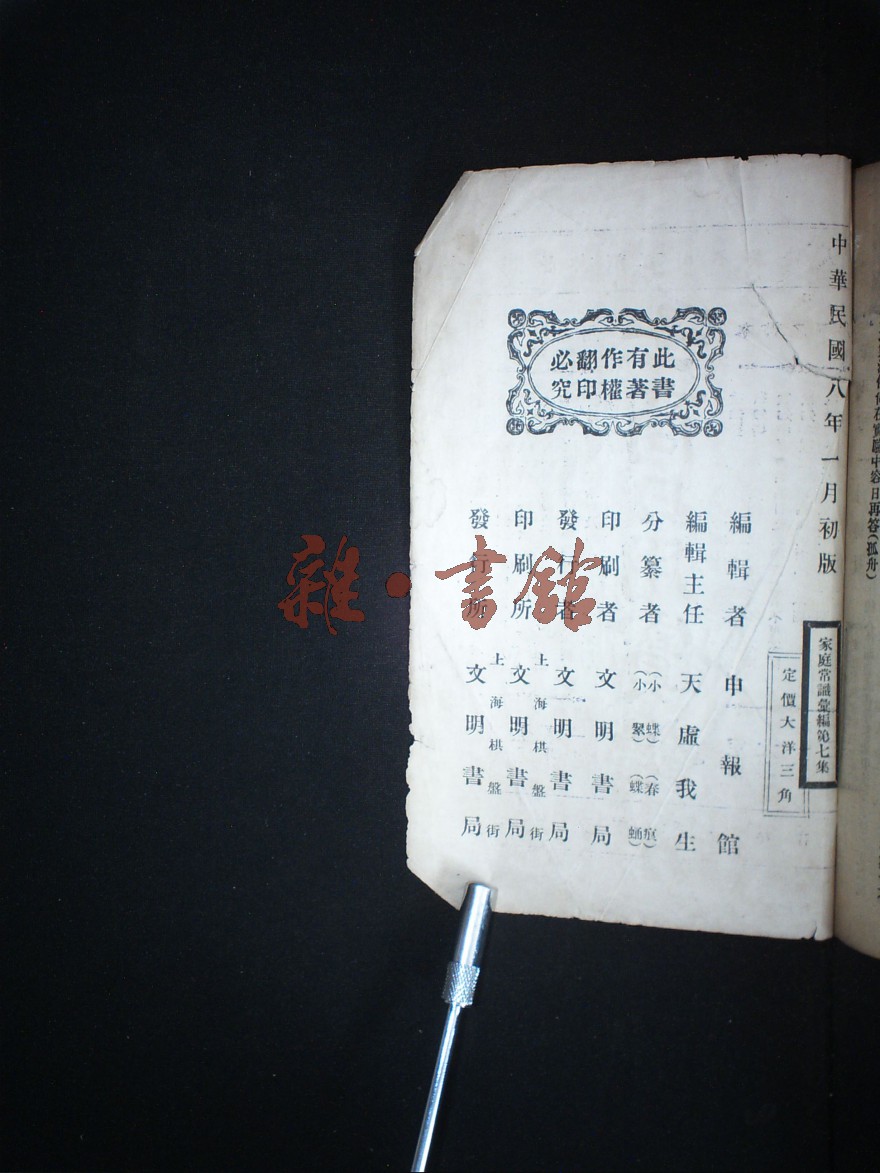 中華民國八年一月初版
家庭常識彙編第七集
定價大洋三角
此書有著作權翻印必究
編輯者 申報館
編輯主任 天虛我生
分纂者 (小蝶) (春痕) (小翠) (蝶蛹)
印刷者 文明書局
發行者 文明書局
印刷所 上海棋盤街 文明書局
發行所 上海棋盤街 文明書局
中容日再答(孤舟)
雜·書館